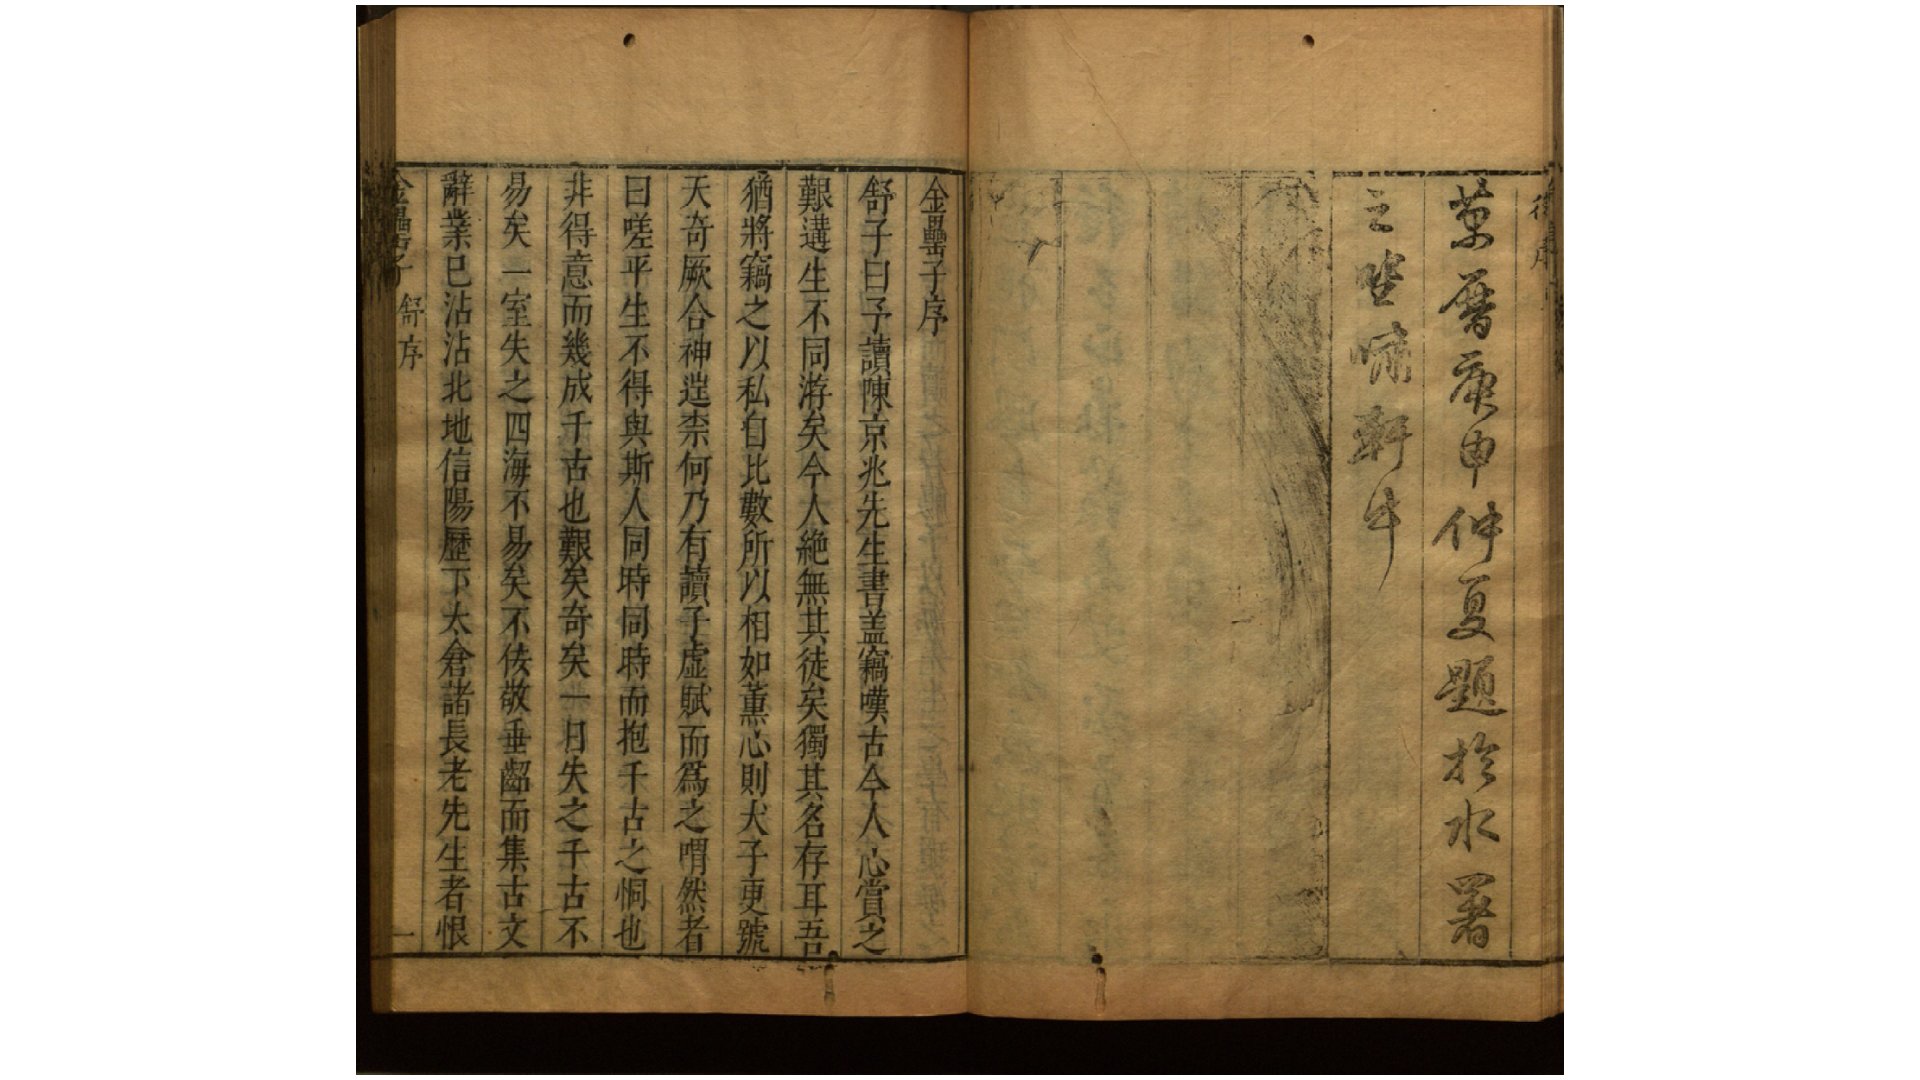 萬曆庚申仲夏題於水署
之坐嘯軒中
金罍子序
舒子曰予讀陳京兆先生書蓋竊嘆古今人心賞之
艱遘生不同游矣今人絶無其徒矣獨其名存耳吾
猶將竊之以私自比數所以相如薰心則犬子更號
天奇厥合神逞柰何乃有讀子虛賦而爲之喟然者
曰嗟乎生不得與斯人同時同時而抱千古之恫也
非得意而幾成千古也艱矣奇矣一日失之千古不
易矣一室失之四海不易矣不佞敬垂齠而集古文
辭業已沾沾北地信陽歷下太倉諸長老先生者恨
金罍子 舒序 一